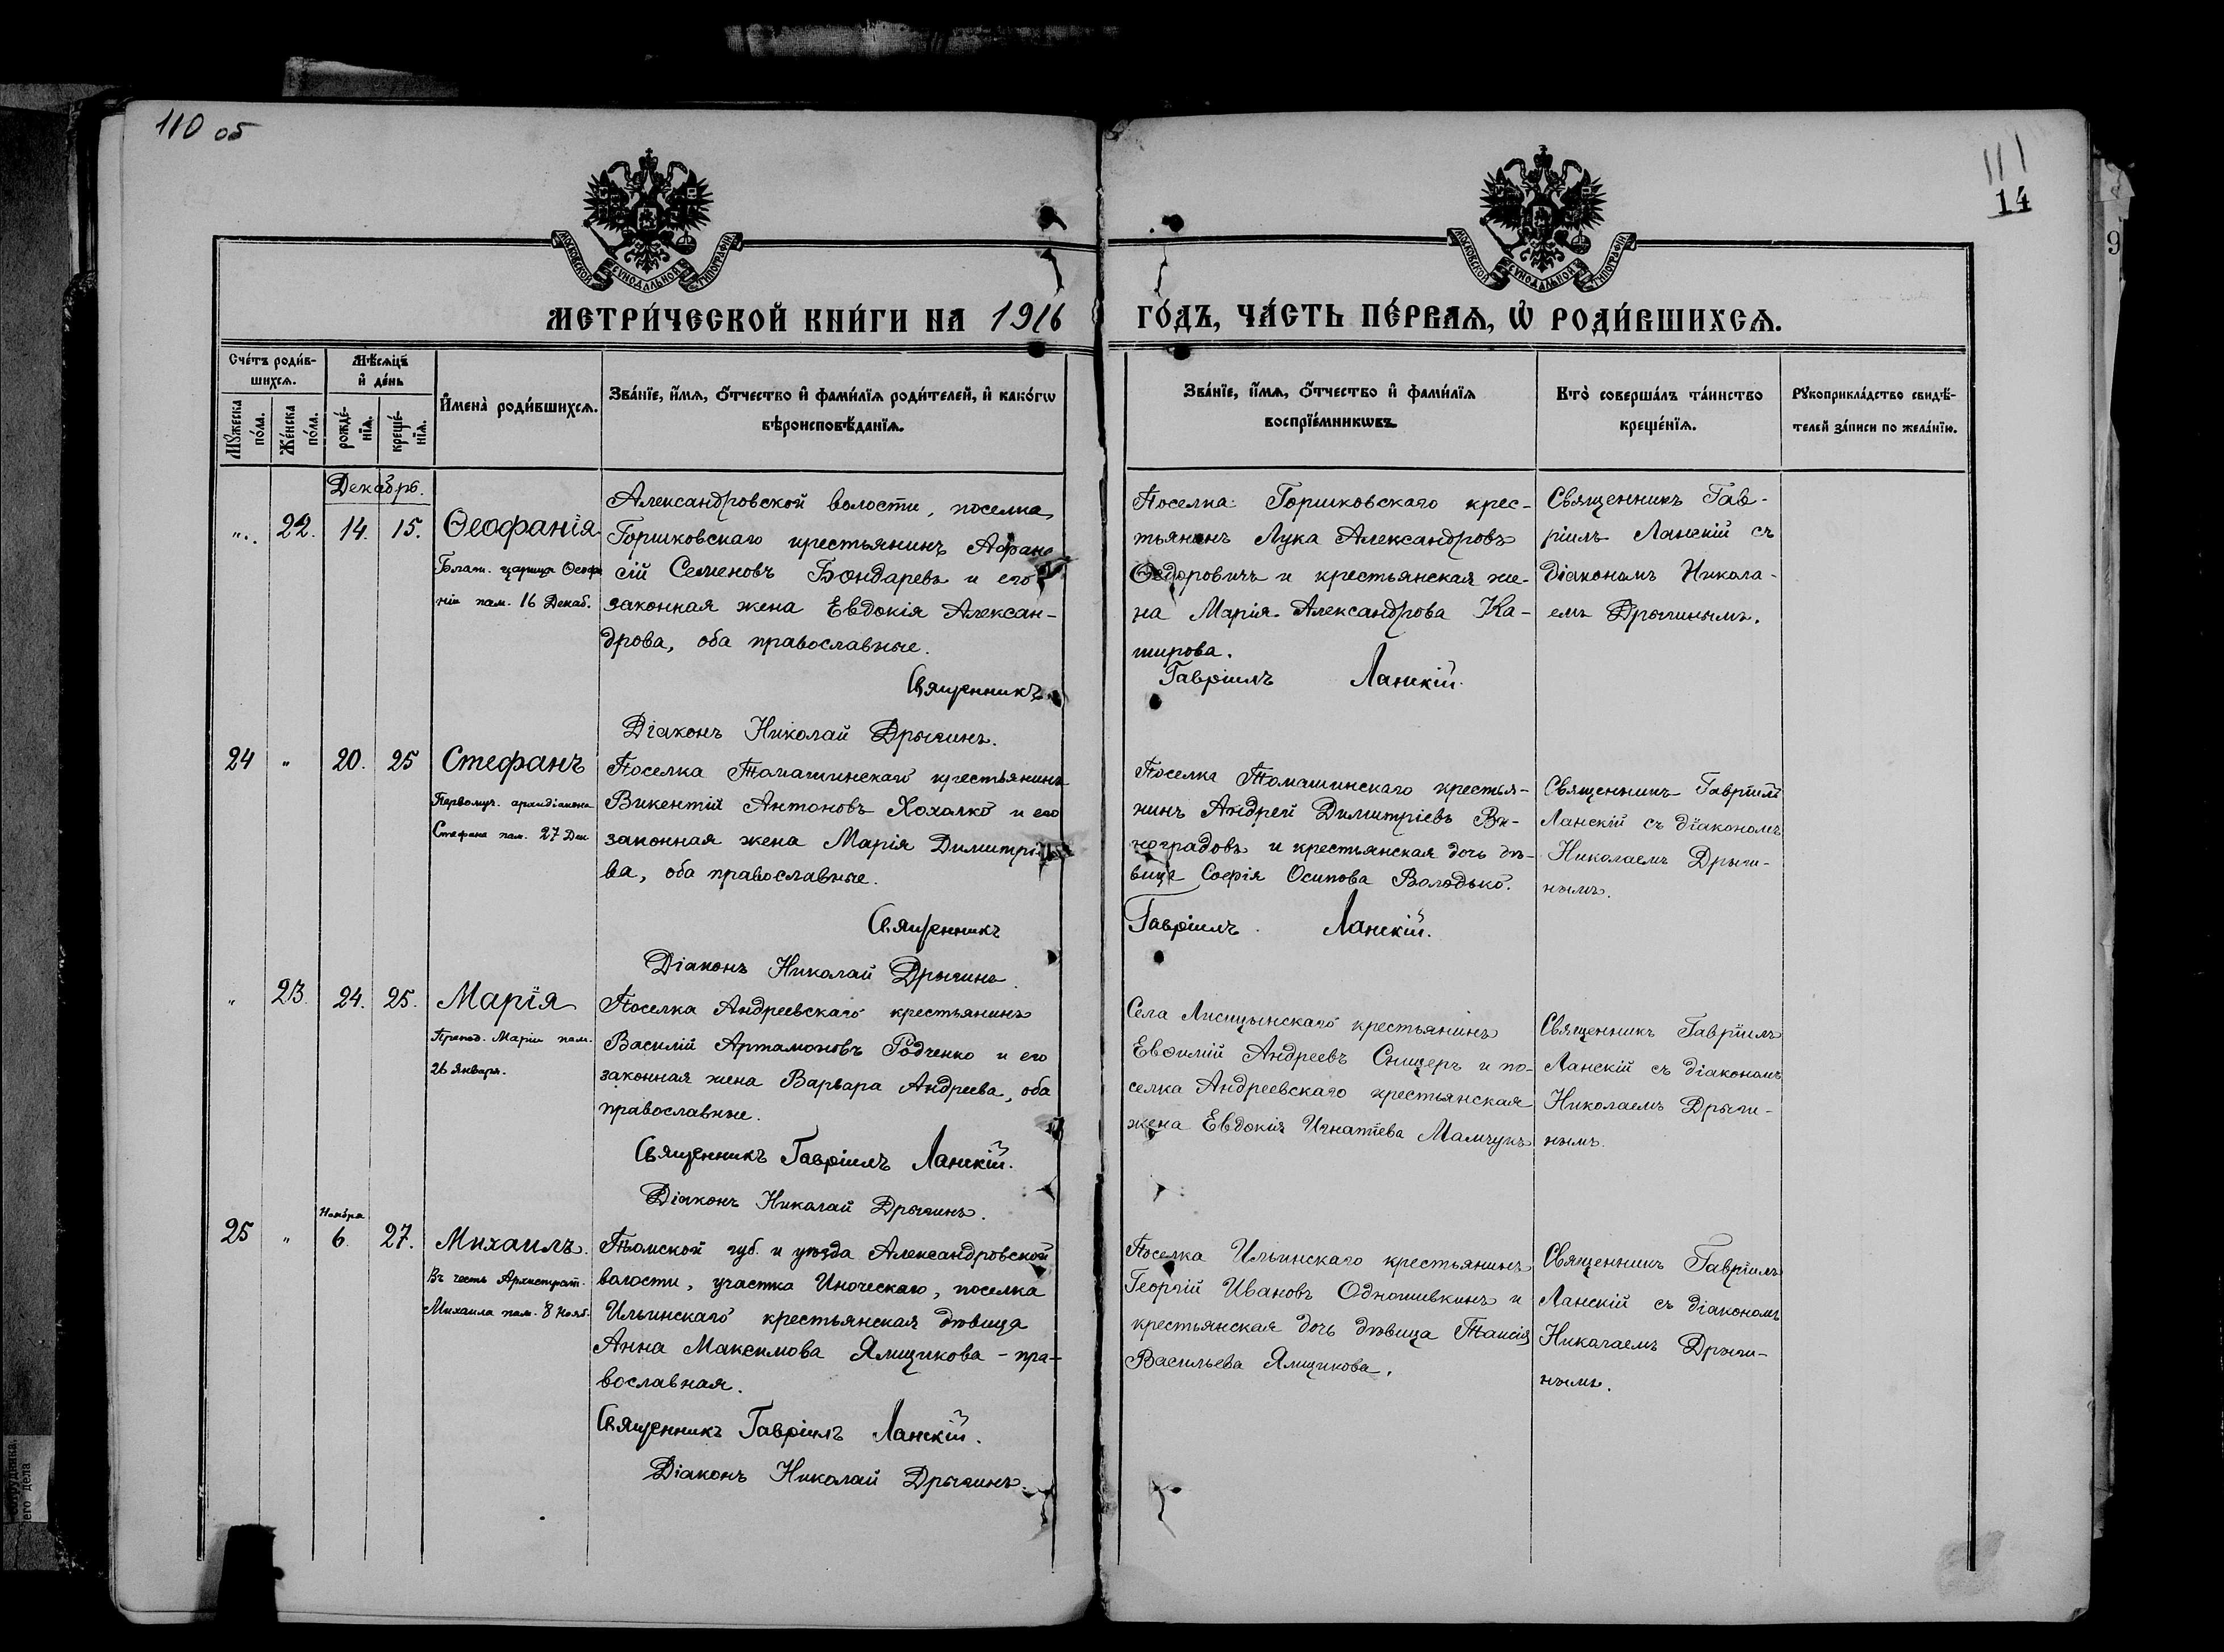 110 об
111
14
9
МОСКОВСКОЙ СѴНОДАЛЬНОЙ ТИПОГРАФІИ.
МОСКОВСКОЙ СѴНОДАЛЬНОЙ ТИПОГРАФІИ.
МЕТРИ́ЧЕСКОЙ КНИ́ГИ НА 1916
ГО́ДЪ, ЧА́СТЬ ПЕ́РВАѦ, Ѽ РОДИ́ВШИХСѦ.
Сче́тъ роди́в-
шихсѧ.
Мѣ́сѧцъ
и҆ де́нь
Мꙋ́жеска
по́ла.
Же́нска
по́ла.
рожде́-
нїѧ.
креще́-
нїѧ.
И҆мена̀ роди́вшихсѧ.
Зва́нїе, и҆́мѧ, ѻ҆́тчество и҆ фами́лїѧ роди́телей, и҆ како́гѡ
вѣроисповѣ́данїѧ.
Зва́нїе, и҆́мѧ, ѻ҆́тчество и҆ фами́лїѧ
воспрїе́мникѡвъ.
Кто̀ соверша́лъ та́инство
креще́нїѧ.
Рꙋкоприкла́дство свидѣ́-
телей за́писи по жела́нїю.
Декабрь.
22. 14. 15. Ѳеофанія
Благов. царица Ѳеофа
ніи пам. 16 Декаб.
Александровской волости, поселка
Горшковскаго крестьянинъ Афана
сій Семеновъ Бондаревъ и его
законная жена Евдокія Алексан-
дрова, оба православные.
Священникъ
Діаконъ Николай Дрыгинъ.
Поселка Горшковскаго крес-
тьянинъ Лука Александровъ
Ѳедоровичъ и крестьянская же-
на Марія Александрова Ка-
широва.
Гавріилъ Ланскій.
Священникъ Гав-
ріилъ Ланскій съ
діакономъ Никола-
емъ Дрыгинымъ.
24 " 20. 25 Стефанъ
Первомуч. архидіакона
Стефана пам. 27 Дек
Поселка Томашинскаго крестьянинъ
Викентій Антоновъ Хохалко и его
законная жена Марія Димитріе
ва, оба православные.
Священникъ
Діаконъ Николай Дрыгинъ
Поселка Томашинскаго крестья-
нинъ Андрей Димитріевъ Ви-
ноградовъ и крестьянская дочь дѣ-
вица Софія Осипова Володько.
Гавріилъ Ланскій.
Священникъ Гавріилъ
Ланскій съ діакономъ
Николаемъ Дрыги-
нымъ.
" 23. 24. 25. Марія
Препод. Маріи пам.
26 Января.
Поселка Андреевскаго крестьянинъ
Василій Артамоновъ Родченко и его
законная жена Варвара Андреева, оба
православные.
Священникъ Гавріилъ Ланскій.
Діаконъ Николай Дрыгинъ.
Села Лисицынскаго крестьянинъ
Евѳимій Андреевъ Сницеръ и по-
селка Андреевскаго крестьянская
жена Евдокія Игнатіева Мамчукъ
Священникъ Гавріилъ
Ланскій съ діакономъ
Николаемъ Дрыги-
нымъ.
Ноября
25 " 6. 27. Михаилъ.
Въ честь Архистрат.
Михаила пам. 8 Нояб.
Томской губ. и уѣзда Александровской
волости, участка Иноческаго, поселка
Ильинскаго крестьянская дѣвица
Анна Максимова Ямщикова – пра-
вославная.
Священникъ Гавріилъ Ланскій.
Діаконъ Николай Дрыгинъ.
Поселка Ильинскаго крестьянинъ
Георгій Ивановъ Одношивкинъ и
крестьянская дочь дѣвица Таисія
Васильева Ямщикова.
Священникъ Гавріилъ
Ланскій съ діакономъ
Николаемъ Дрыги-
нымъ.